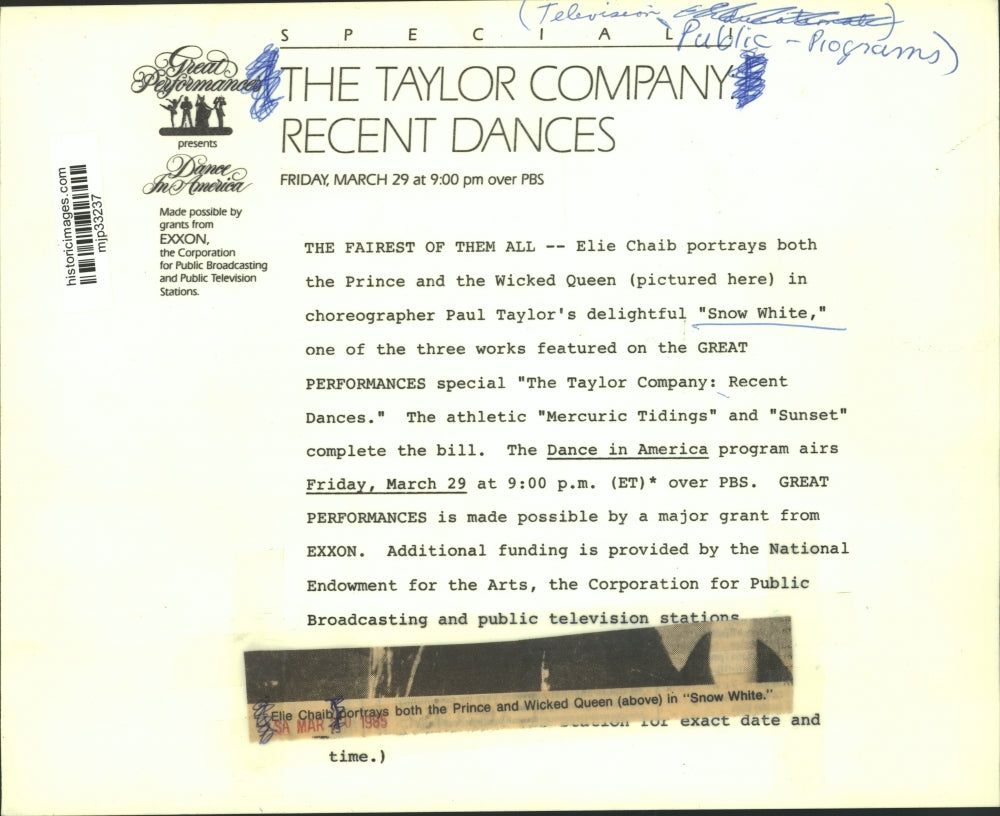 (Television
Public - Programs)
SPECIAL
THE TAYLOR COMPANY
RECENT DANCES
FRIDAY, MARCH 29 at 9:00 pm over PBS
Great
Performances
presents
Dance
In America
Made possible by
grants from
EXXON,
the Corporation
for Public Broadcasting
and Public Television
Stations.
historicimages.com
mjp33237
THE FAIREST OF THEM ALL -- Elie Chaib portrays both
the Prince and the Wicked Queen (pictured here) in
choreographer Paul Taylor's delightful "Snow White,"
one of the three works featured on the GREAT
PERFORMANCES special "The Taylor Company: Recent
Dances." The athletic "Mercuric Tidings" and "Sunset"
complete the bill. The Dance in America program airs
Friday, March 29 at 9:00 p.m. (ET)* over PBS. GREAT
PERFORMANCES is made possible by a major grant from
EXXON. Additional funding is provided by the National
Endowment for the Arts, the Corporation for Public
Broadcasting and public television stations
Elie Chaib portrays both the Prince and Wicked Queen (above) in "Snow White."
SA MAR 1985
station for exact date and
time.)